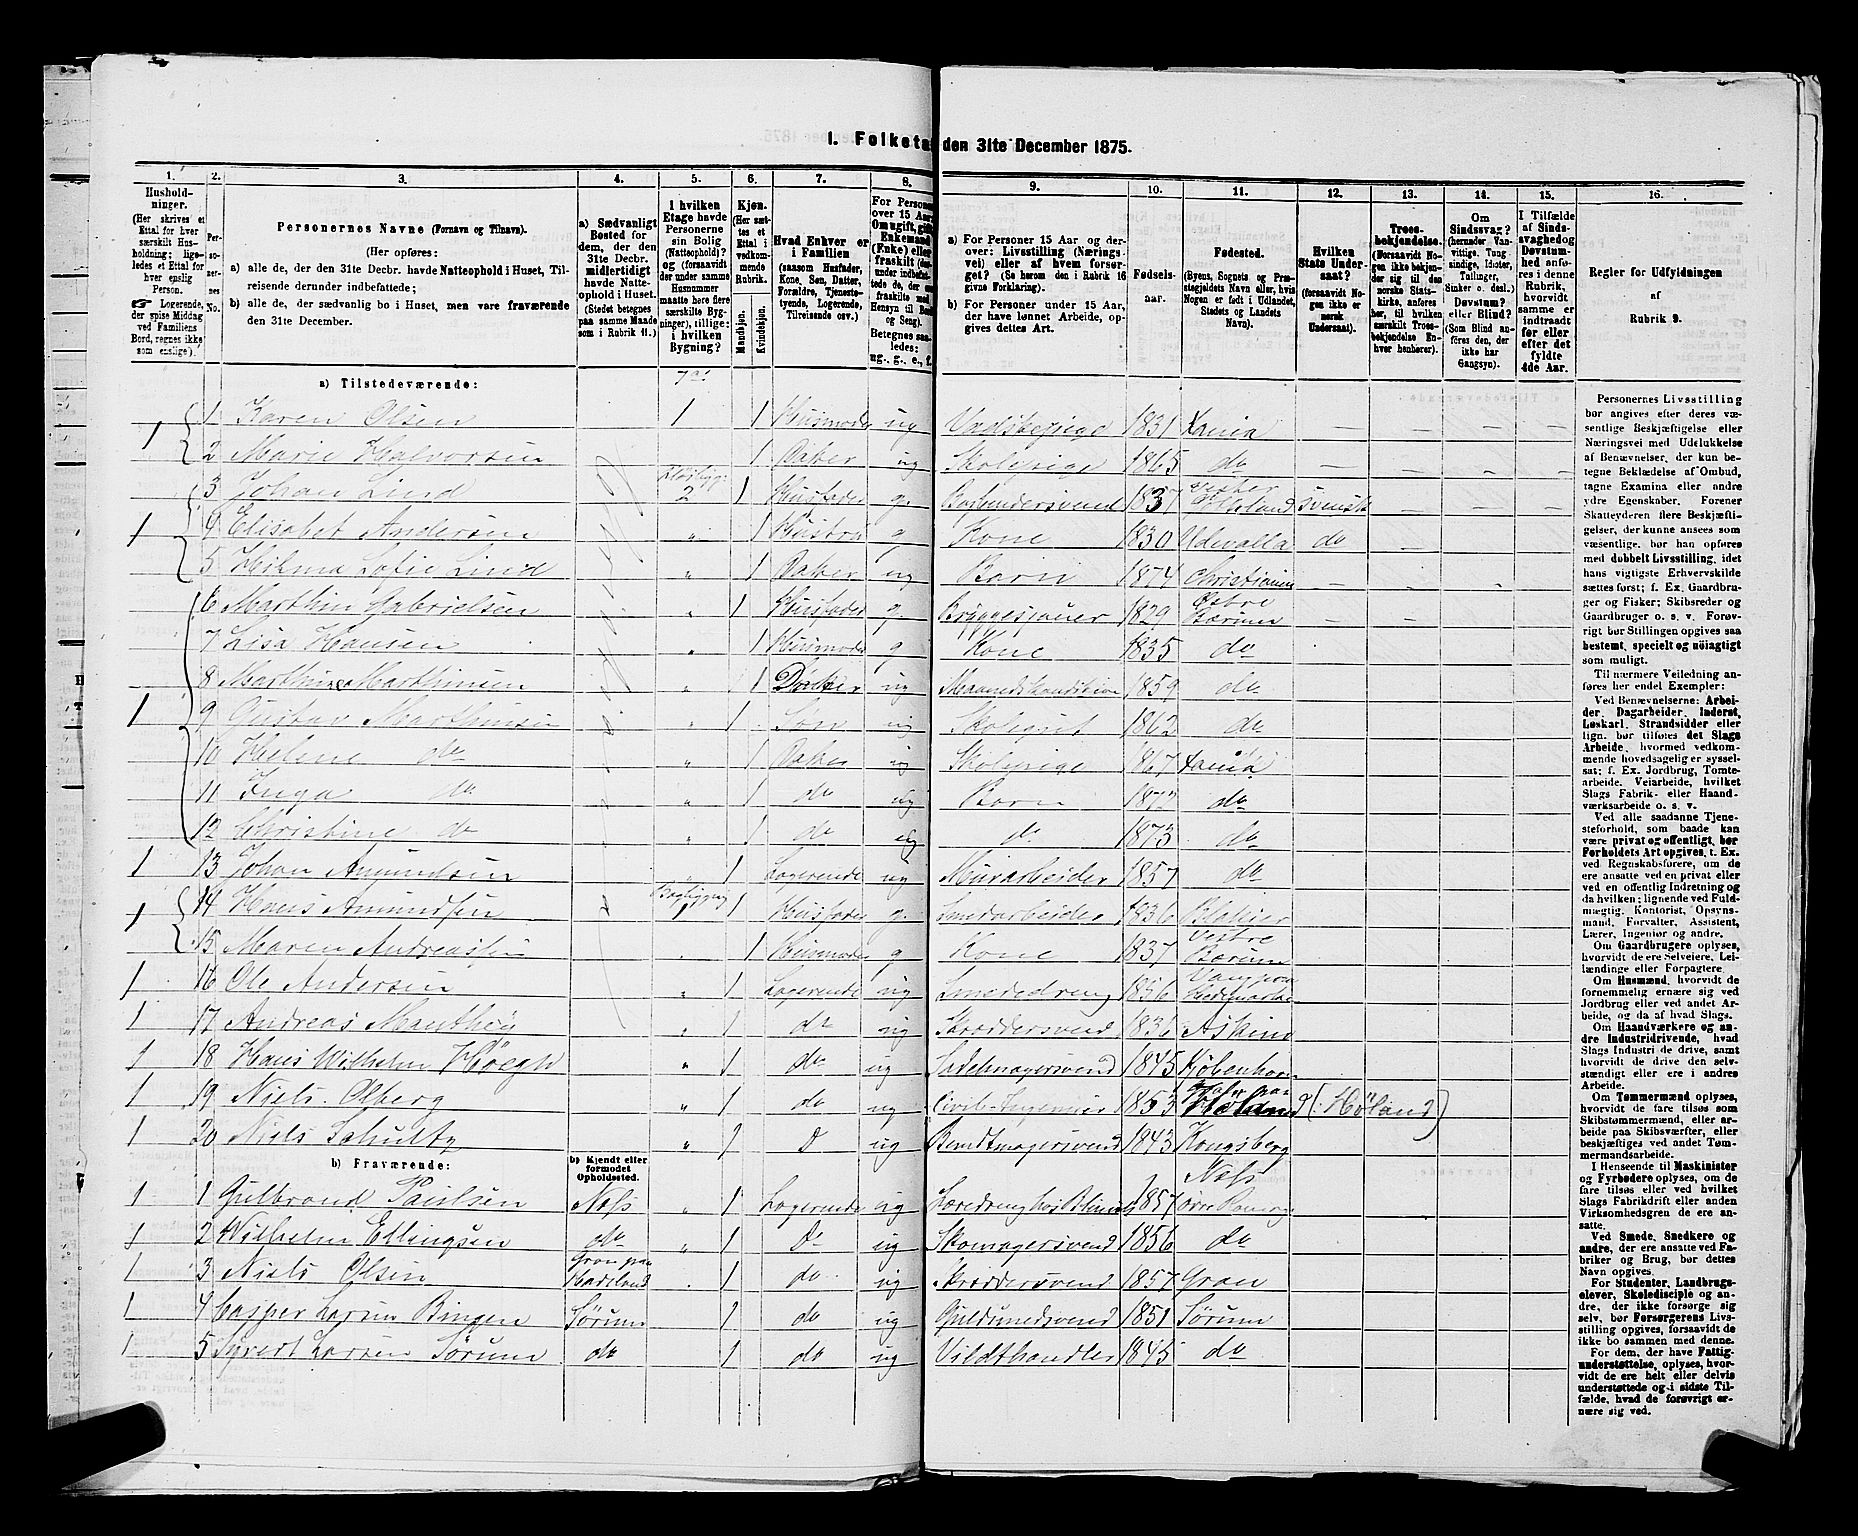 1. Folketal den 31te December 1875.
1. 2. 3. 4. 5. 6. 7. 8. 9. 10. 11. 12. 13. 14. 15. 16.
Husholdninger.
(Her skrives et Ettal for hver særskilt Husholdning; ligeledes et Ettal for hver enslig Person.
☞ Logerende, der spise Middag ved Familiens Bord, regnes ikke som enslige).
Personernes No.
Personernes Navne (Fornavn og Tilnavn).
(Her opføres:
a) alle de, der den 31te Decbr. havde Natteophold i Huset, Tilreisende derunder indbefattede;
b) alle de, der sædvanlig bo i Huset, men vare fraværende den 31te December.
a) Sædvanligt Bosted for dem, der den 31te Decbr. midlertidigt havde Natteophold i Huset. (Stedet betegnes paa samme Maade som i Rubrik 11.)
I hvilken Etage havde Personerne sin Bolig (Natteophold)? og (forsaavidt der under samme Husnummer maatte høre flere særskilte Bygninger), tillige: i hvilken Bygning?
Kjøn. (Her sættes et Ettal i vedkommende Rubrik.
Mandkjøn. Kvindekjøn.
Hvad Enhver er i Familien
(saasom Husfader, Kone, Søn, Datter, Forældre, Tjenestetyende, Logerende, Tilreisende osv.)
a) For Personer 15 Aar og derover: Livsstilling (Næringsvei) eller af hvem forsørget? (Se herom den i Rubrik 16 givne Forklaring).
b) For Personer under 15 Aar, der have lønnet Arbeide, opgives dettes Art.
Fødselsaar.
Fødested.
(Byens, Sognets og Præstegjeldets Navn eller, hvis Nogen er født i Udlandet, Stedets og Landets Navn).
Hvilken Stats Undersaat?
(forsaavidt Nogen ikke er norsk Undersaat).
Troesbekjendelse.
(Forsaavidt Nogen ikke bekjender sig til den norske Statskirke, anføres her, til hvilken særskilt Troesbekjendelse Enhver henhører).
Om Sindssvag? (herunder Vanvittige, Tungsindige, Idioter, Tullinger, Sinker o. desl.) Døvstum? eller Blind? (Som Blind anføres den, der ikke har Gangsyn).
I Tilfælde af Sindssvaghed og Døvstumhed anføres i denne Rubrik, hvorvidt samme er indtraadt før eller efter det fyldte 4de Aar.
Regler for Udfyldningen af Rubrik 9.
a) Tilstedeværende:
1 1 Karen Olsen 1 1 Husmoder ug 1831 – – – –
2 Marie Halvorsen 1 Datter ug Skolepige 1865 do – – – –
1 3 Johan Lind 2 1 Husfader g. Bogbindersvend 1837 svensk –
4 Elisabet Andersen " 1 Hustru g Kone 1830 Udevalla do –
5 Hilma Sofie Lind " 1 Datter ug Barn 1874 Christiania – –
1 6 Marthin Gabrielsen " 1 Husfader g. 1829 Østre Bærum – –
7 Lisa Hansen " 1 Husmoder g Kone 1835 do
8 Marthine Marthinsen " 1 Datter ug 1859 do
9 Gustav Marthinsen " 1 Søn ug Skolegut 1862 do
10 Helene do " 1 Datter ug Skolepige 1867
11 Inga do " 1 do ug Barn 1872 do
12 Christine do " 1 do ug do 1873 do
1 13 Johan Amundsen " 1 Logerende ug Murarbeider 1857 do
1 14 Hans Amundsen 1 1 Husfader g. Smedarbeider 1836 Blaker
15 Maren Andreassen " 1 Husmoder g Kone 1837 Vestre Bærum
1 16 Ole Andersen " 1 Logerende ug Smededreng 1856
1 17 Andreas Manthey " 1 do ug Skræddersvend 1836 Askim
1 18 Hans Wilhelm Høegh " 1 do ug Sadelmagersvend 1845 Kjøbenhavn
1 19 Niels Olberg " 1 do ug Civil-Ingeniør 1853 (: Høland)
1 20 Niels Schultz " 1 D ug Bundtmagersvend 1843 Kongsberg
b) Fraværende: b) Kjendt eller formodet Opholdssted.
1 1 Gulbrand Paulsen Næs " 1 Logerende ug 1857 Næs
1 2 Wilhelm Ellingsen do " 1 Do ug Skomagersvend 1856 do
1 3 Niels Olsen Gran paa Hadeland 1 do ug Skræddersvend 1857 Gran
1 4 Casper Larsen Bingen Sørum 1 do ug Guldsmedsvend 1851 Sørum
1 5 Syvert Larsen Sørum do 1 do ug Vildthandler 1845 do
Personernes Livsstilling bør angives efter deres væsentlige Beskjæftigelse eller Næringsvei med Udelukkelse af Benævnelser, der kun betegne Beklædelse af Ombud, tagne Examina eller andre ydre Egenskaber. Forener Skatteyderen flere Beskjæftigelser, der kunne ansees som væsentlige, bør han opføres med dobbelt Livsstilling, idet hans vigtigste Erhvervskilde sættes først; f. Ex. Gaardbruger og Fisker; Skibsreder og Gaardbruger o. s. v. Forøvrigt bør Stillingen opgives saa bestemt, specielt og nøiagtigt som muligt.
Til nærmere Veiledning anføres her endel Exempler:
Ved Benævnelserne: Arbeider, Dagarbeider, Inderst, Løskarl, Strandsidder eller lign. bør tilføies det Slags Arbeide, hvormed vedkommende hovedsagelig er sysselsat; f. Ex. Jordbrug, Tomtearbeide, Veiarbeide, hvilket Slags Fabrik- eller Haandværksarbeide o. s. v.
Ved alle saadanne Tjenesteforhold, som baade kan være privat og offentligt, bør Forholdets Art opgives, t. Ex. ved Regnskabsførere, om de ere ansatte ved en privat eller ved en offentlig Indretning og da hvilken; lignende ved Fuldmægtig, Kontorist, Opsynsmand, Forvalter, Assistent, Lærer, Ingeniør og andre.
Om Gaardbrugere oplyses, hvorvidt de ere Selveiere, Leilændinge eller Forpagtere.
Om Husmænd, hvorvidt de fornemmelig ernære sig ved Jordbrug eller ved andet Arbeide, og da af hvad Slags.
Om Haandværkere og andre Industridrivende, hvad Slags Industri de drive, samt hvorvidt de drive den selvstændigt eller ere i andres Arbeide.
Om Tømmermænd oplyses, hvorvidt de fare tilsøs som Skibstømmermænd, eller arbeide paa Skibsværfter, eller beskjæftiges ved andet Tømmermandsarbeide.
I Henseende til Maskinister og Fyrbødere oplyses, om de fare tilsøs eller ved hvilket Slags Fabrikdrift eller anden Virksomhedsgren de ere ansatte.
Ved Smede, Snedkere og andre, der ere ansatte ved Fabriker og Brug, bør dettes Navn opgives.
For Studenter, Landbrugselever, Skoledisciple og andre, der ikke forsørge sig selv, bør Forsørgerens Livsstilling opgives, forsaavidt de ikke bo sammen med denne.
For dem, der have Fattigunderstøttelse, oplyses, hvorvidt de ere helt eller delvis understøttede og i sidste Tilfælde, hvad de forøvrigt ernære sig ved.